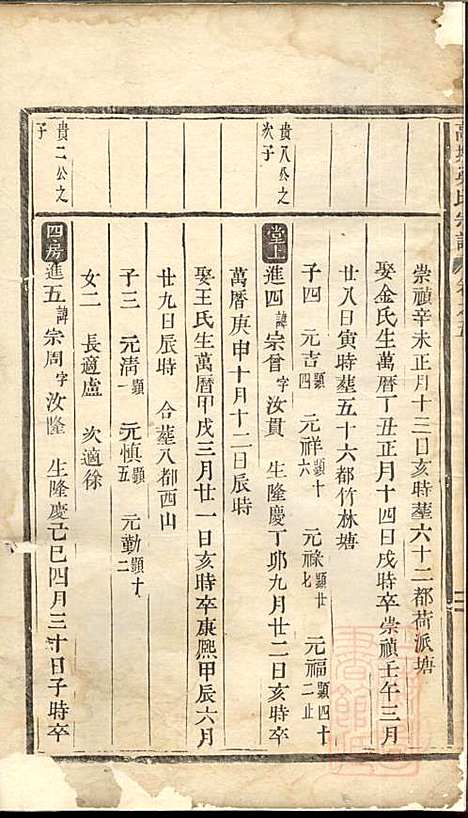 崇禎辛未正月十三日亥時塟六十二都荷派塘
娶金氏生萬曆丁丑正月十四日戌時卒崇禎壬午三月
廿八日寅時塟五十六都竹林塘
子四 元吉顯四 元祥顯十六 元祿顯廿七 元福顯四十二止
貴八公之次子
堂上進四諱宗曾字汝貫 生隆慶丁卯九月廿二日亥時卒
萬曆庚申十月十二日辰時
娶王氏生萬曆甲戌三月廿一日亥時卒康熙甲辰六月
廿九日辰時 合塟八都西山
子三 元清顯一 元慎顯五 元勤顯十二
女二 長適盧 次適徐
貴二公之子
四房進五諱宗周字汝隆 生隆慶己巳四月三十日子時卒